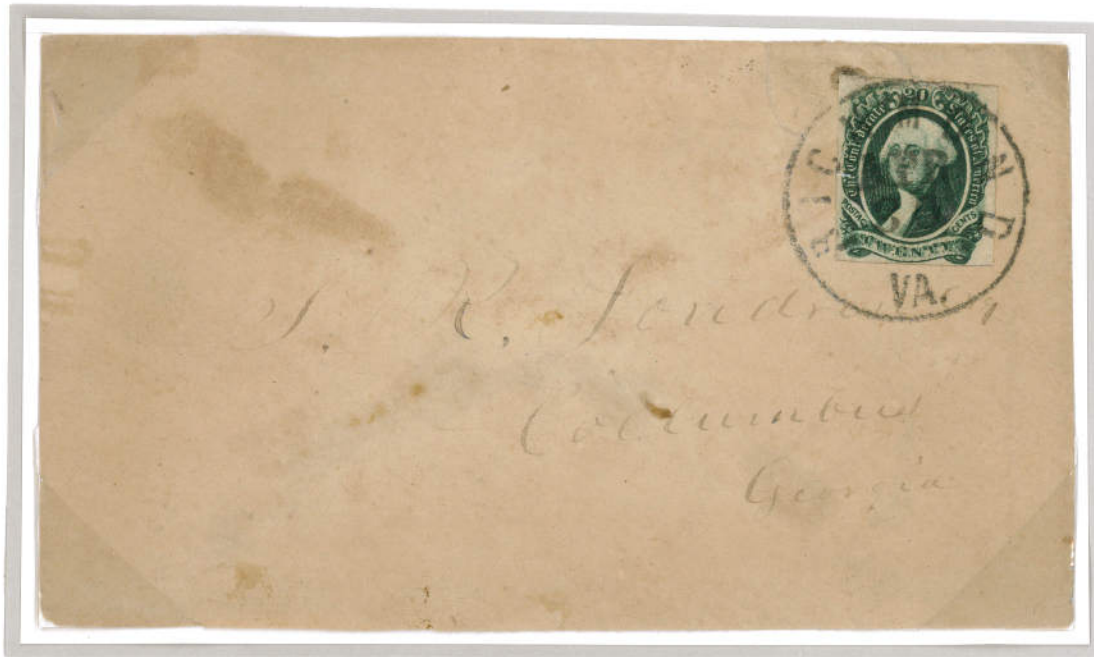 20
The Confederate States of America
POSTAGE CENTS
TWENTY
RICHMOND
VA.
Columbus
Georgia